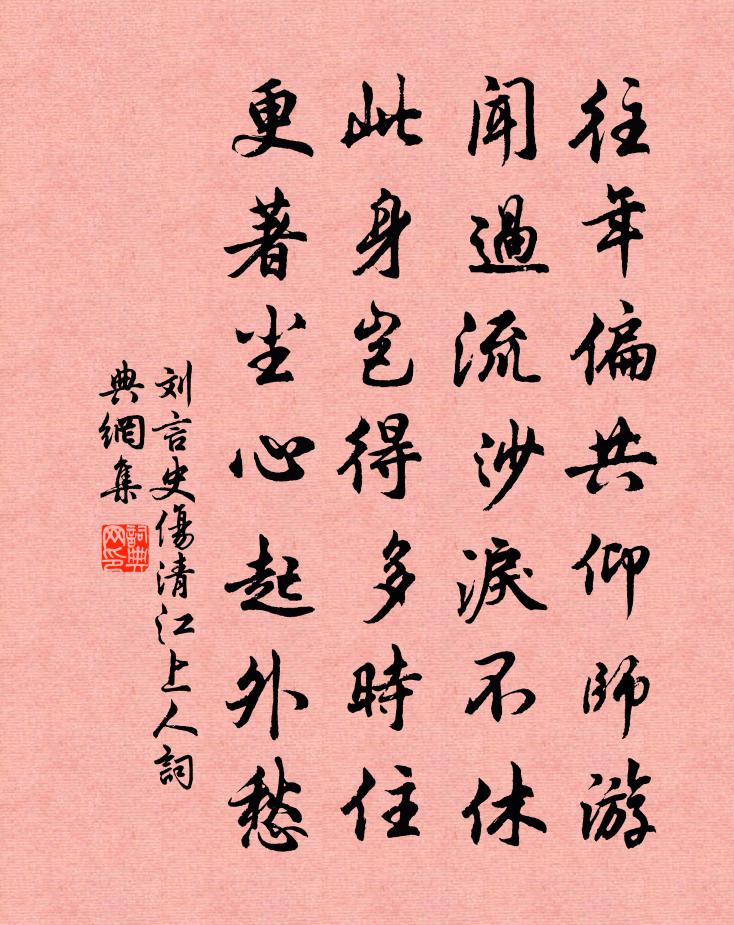 往年偏共仰師游
聞過流沙淚不休
此身岂得多時住
更著尘心起外愁
刘言史傷清江上人詞
典網集
詞典
网印